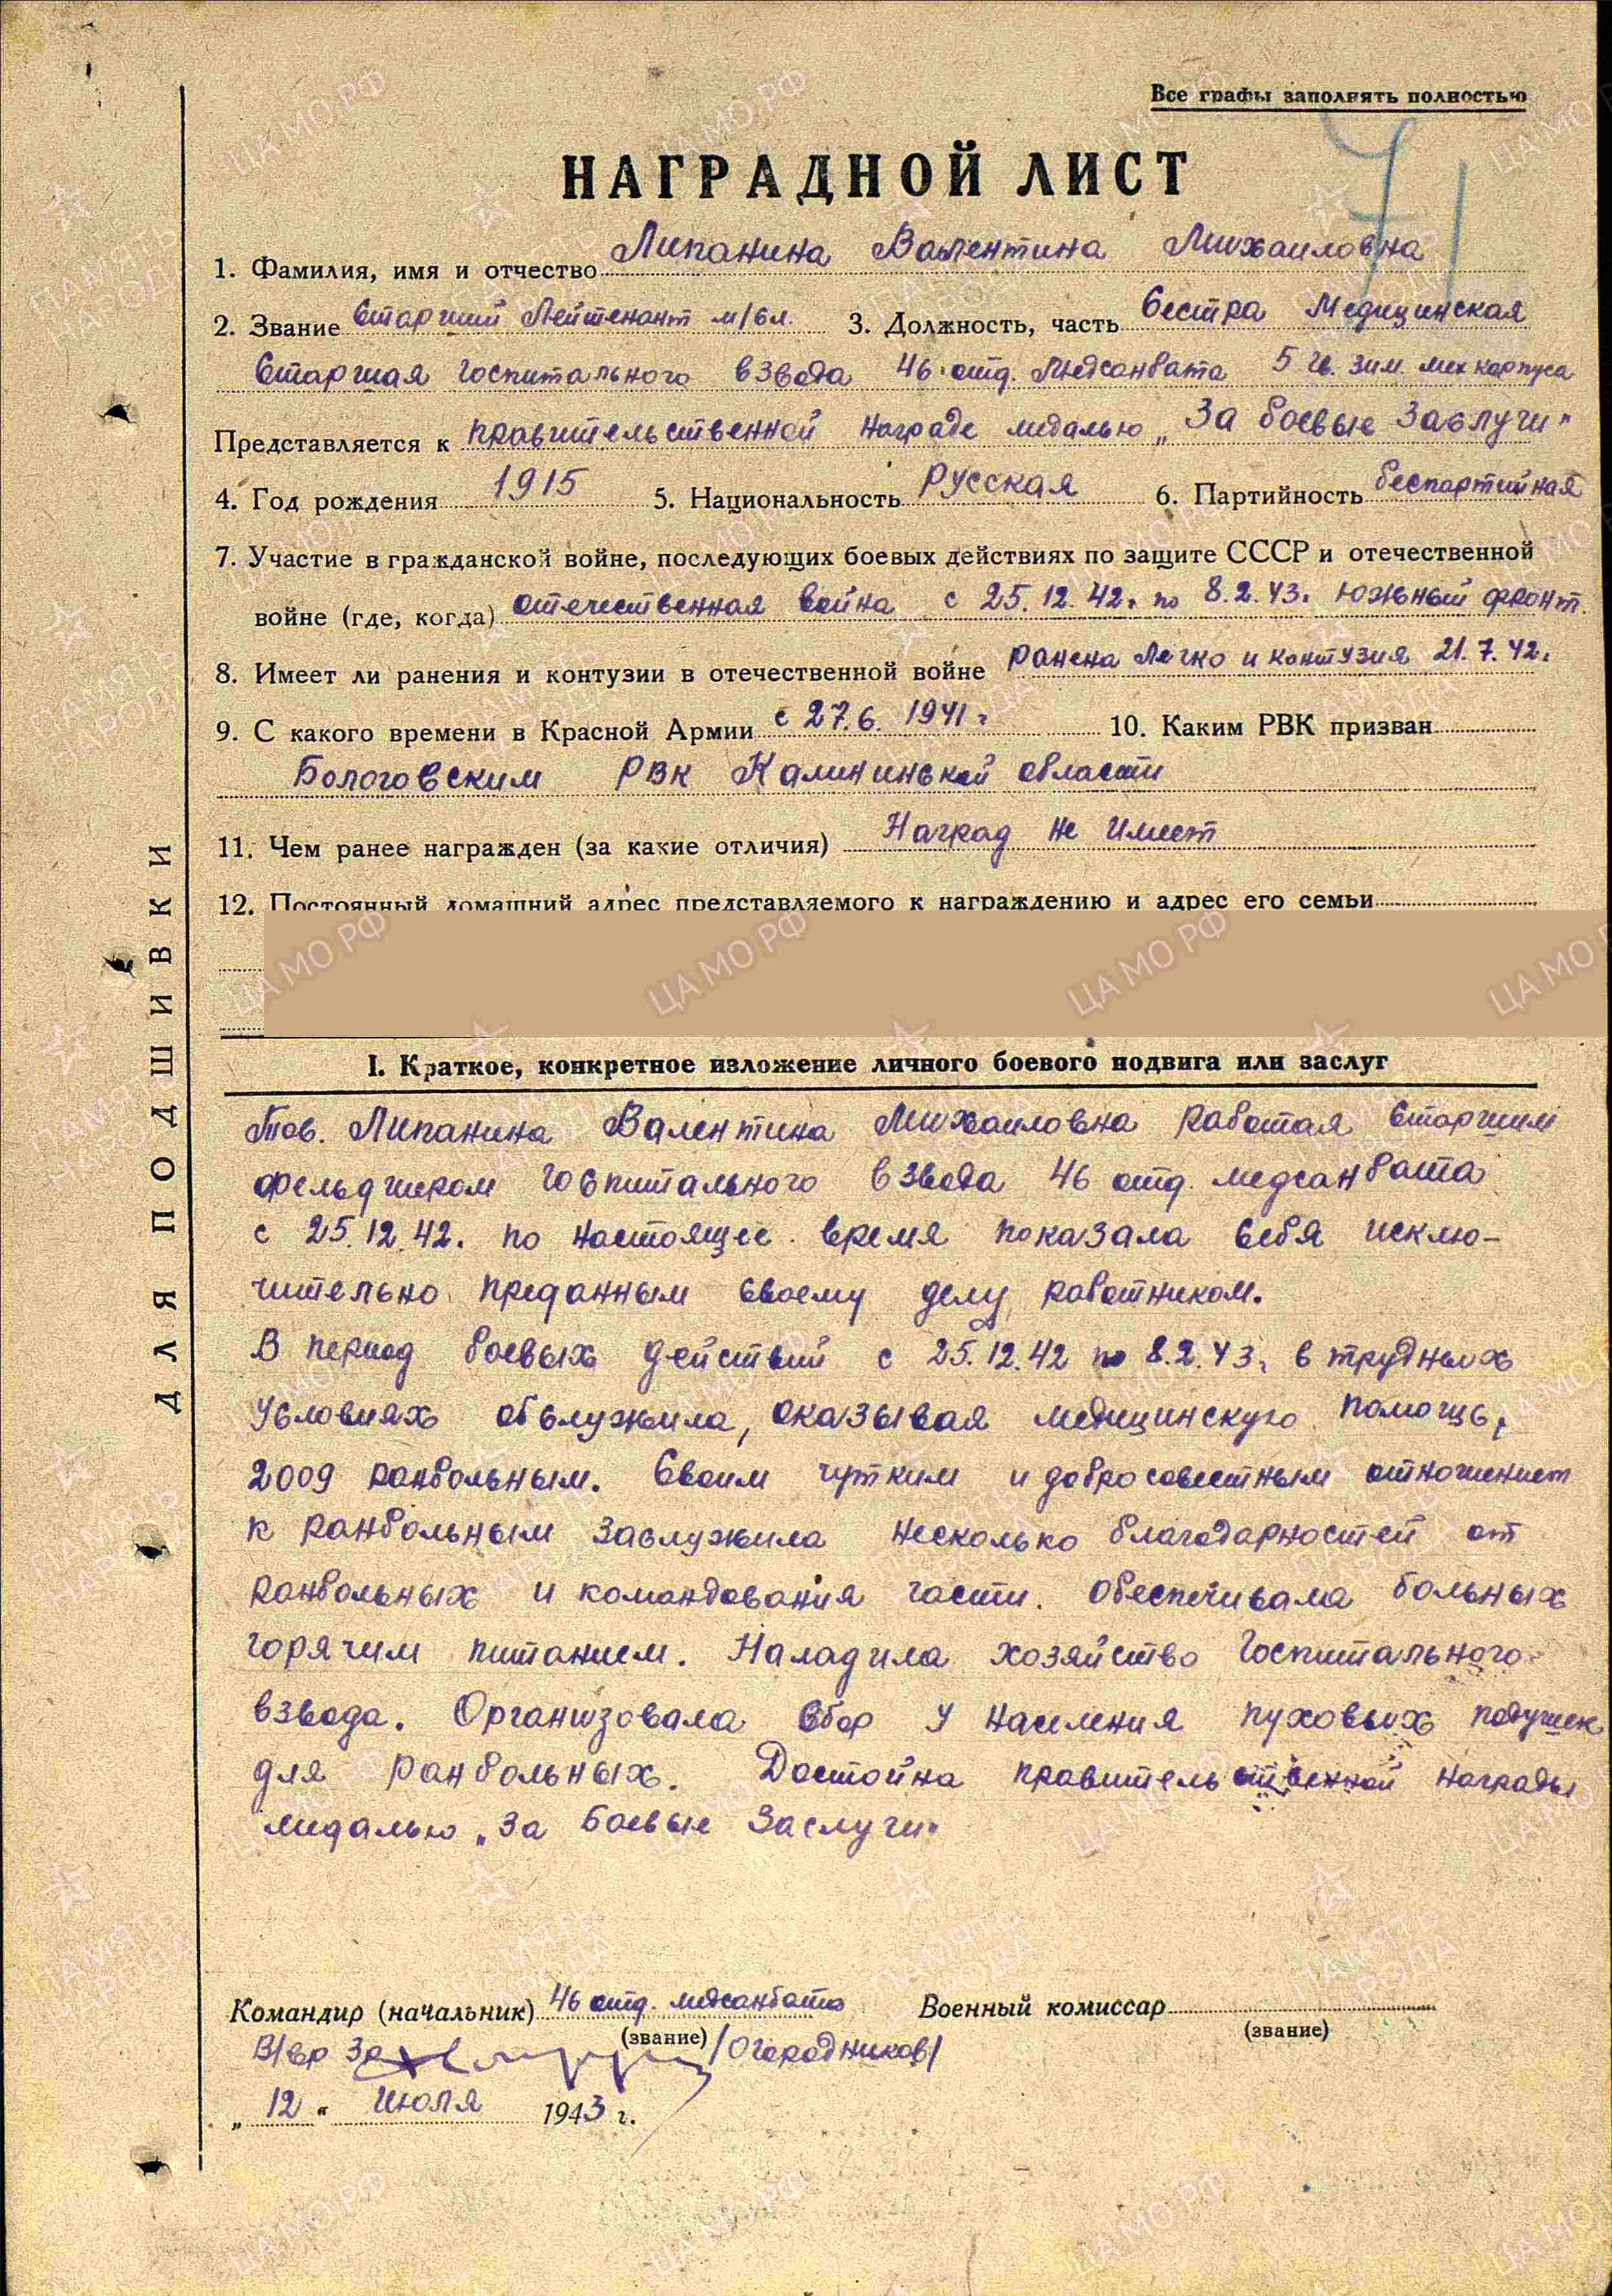 Все графы заполнять полностью
71
НАГРАДНОЙ ЛИСТ
1. Фамилия, имя и отчество Липанина Валентина Михаиловна
2. Звание Старший Лейтенант м/сл. 3. Должность, часть Сестра Медицинская
Старшая госпитального взвода 46 отд. Медсанбата 5 гв. зим. мех корпуса
Представляется к правительственной награде медалью „За боевые Заслуги"
4. Год рождения 1915 5. Национальность Русская 6. Партийность беспартийная
7. Участие в гражданской войне, последующих боевых действиях по защите СССР и отечественной
войне (где, когда) отечественная война с 25.12.42. по 8.2.43. Южный фронт.
8. Имеет ли ранения и контузии в отечественной войне ранена легко и контузия 21.7.42.
9. С какого времени в Красной Армии с 27.6.1941г 10. Каким РВК призван
Бологовским РВК Калининской области
11. Чем ранее награжден (за какие отличия) Наград не имеет
12. Постоянный домашний адрес представляемого к награждению и адрес его семьи
ДЛЯ ПОДШИВКИ
I. Краткое, конкретное изложение личного боевого подвига или заслуг
Тов. Липанина Валентина Михаиловна работая Старшим
фельдшером госпитального взвода 46 отд. медсанбата
с 25.12.42. по настоящее время показала себя исклю-
чительно преданным своему делу работником.
В период боевых действий с 25.12.42 по 8.2.43. в трудных
условиях обслужила, оказывая медицинскую помощь,
2009 ранбольным. Своим чутким и добросовестным отношением
к ранбольным заслужила несколько благодарностей от
ранбольных и командования части. Обеспечивала больных
горячим питанием. Наладила хозяйство госпитального
взвода. Организовала сбор у населения пуховых подушек
для ранбольных. Достойна правительственной награды
медалью „За Боевые Заслуги"
Командир (начальник) 46 отд. медсанбата Военный комиссар
(звание) (звание)
В/вр 3р /Огородников/
„12" Июля 1943 г.
ЦА МО РФ
ПАМЯТЬ НАРОДА